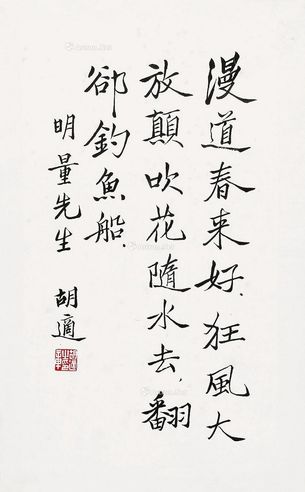 漫道春来好．狂風大
放顛吹花隨水去．翻
卻釣魚船．
明量先生
胡適